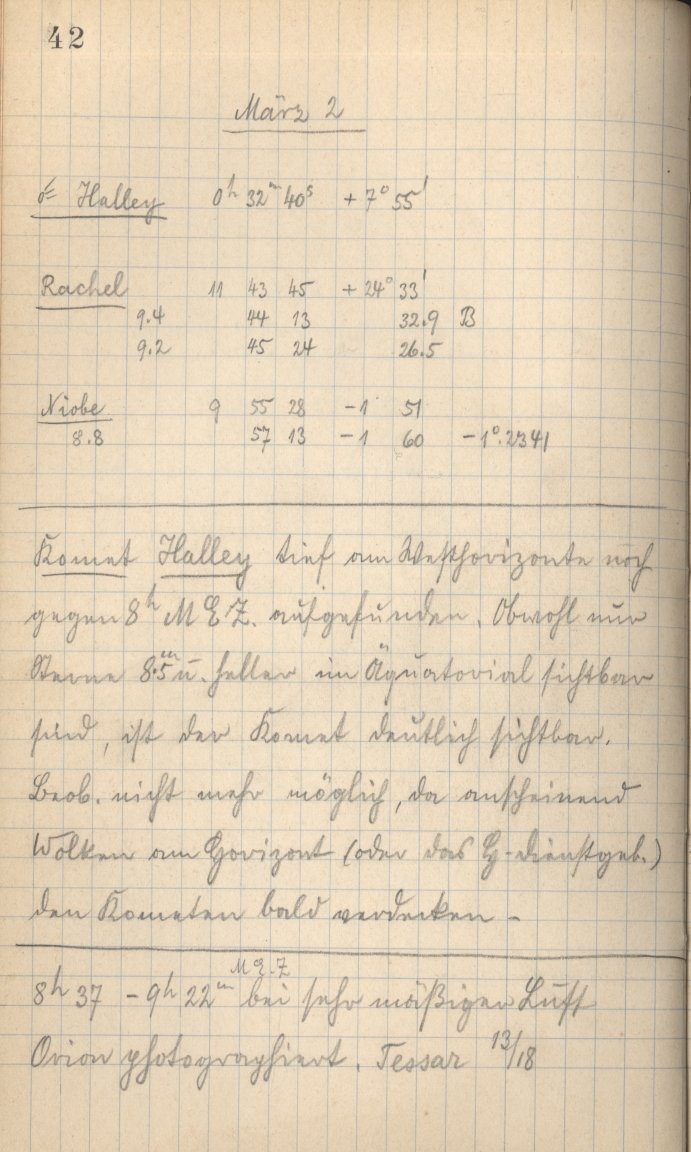 42
März 2
☄ Halley 0h 32m 40s + 7° 55'
Rachel 11 43 45 + 24° 33'
9.4 44 13 32.9 B
9.2 45 24 26.5
Niobe 9 55 28 -1 51
8.8 57 13 -1 60 -1°.2341
Komet Halley tief am Westhorizonte noch
gegen 8h M E Z. aufgefunden. Obwohl nur
Sterne 8.m5 u. heller im Äquatorial sichtbar
sind, ist der Komet deutlich sichtbar.
Beob. nicht mehr möglich, da anscheinend
Wolken am Horizont (oder das
den Kometen bald verdecken -
M E. Z
8h 37 - 9h 22m bei sehr mäßiger Luft
Orion photographiert. Tessar 13/18